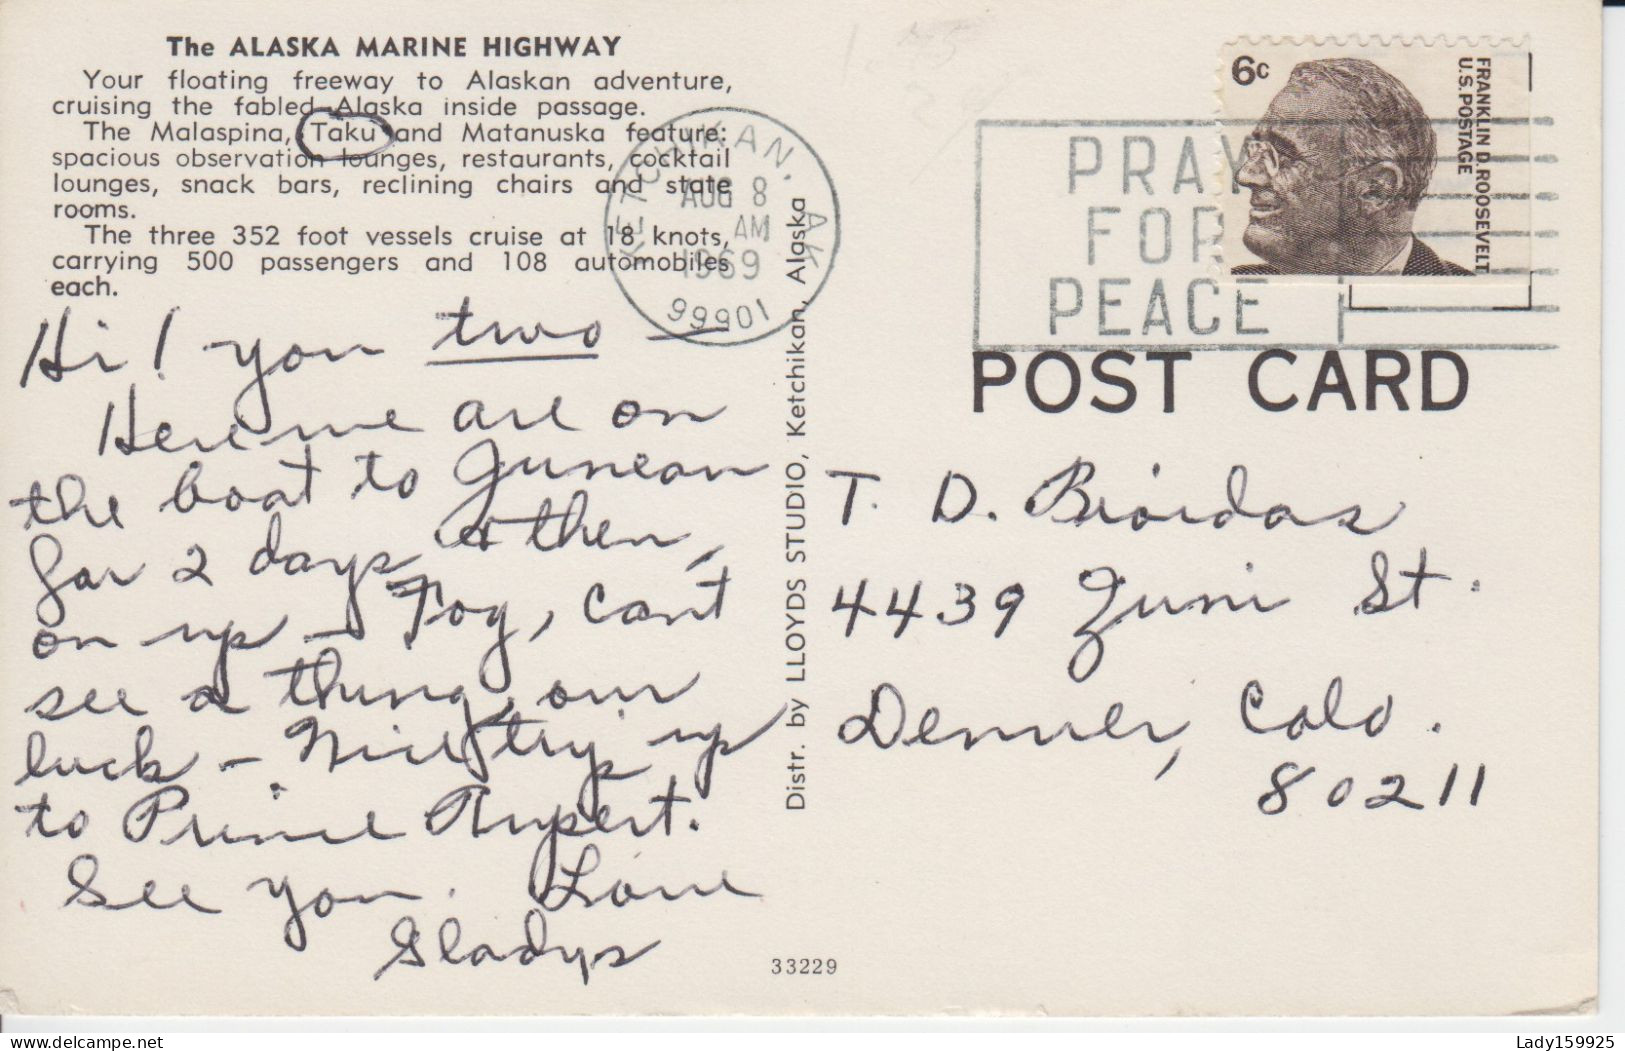 The ALASKA MARINE HIGHWAY
Your floating freeway to Alaskan adventure,
cruising the fabled Alaska inside passage.
The Malaspina, Taku and Matanuska feature:
spacious observation lounges, restaurants, cocktail
lounges, snack bars, reclining chairs and state
rooms.
The three 352 foot vessels cruise at 18 knots,
carrying 500 passengers and 108 automobiles
each.
Hi! you two —
Here we are on
the boat to Juneau
for 2 days & then,
on up – Fog, can't
see a thing, our
luck – Nice trip up
to Prince Rupert.
See you. Love
Gladys
KETCHIKAN, AK
AUG 8
AM
1969
99901
Distr. by LLOYDS STUDIO, Ketchikan, Alaska
33229
PRAY
FOR
PEACE
6c
FRANKLIN D. ROOSEVELT
U.S. POSTAGE
POST CARD
T. D. Bioidas
4439 Zuni St.
Denver, Colo.
80211
delcampe.net
Lady159925